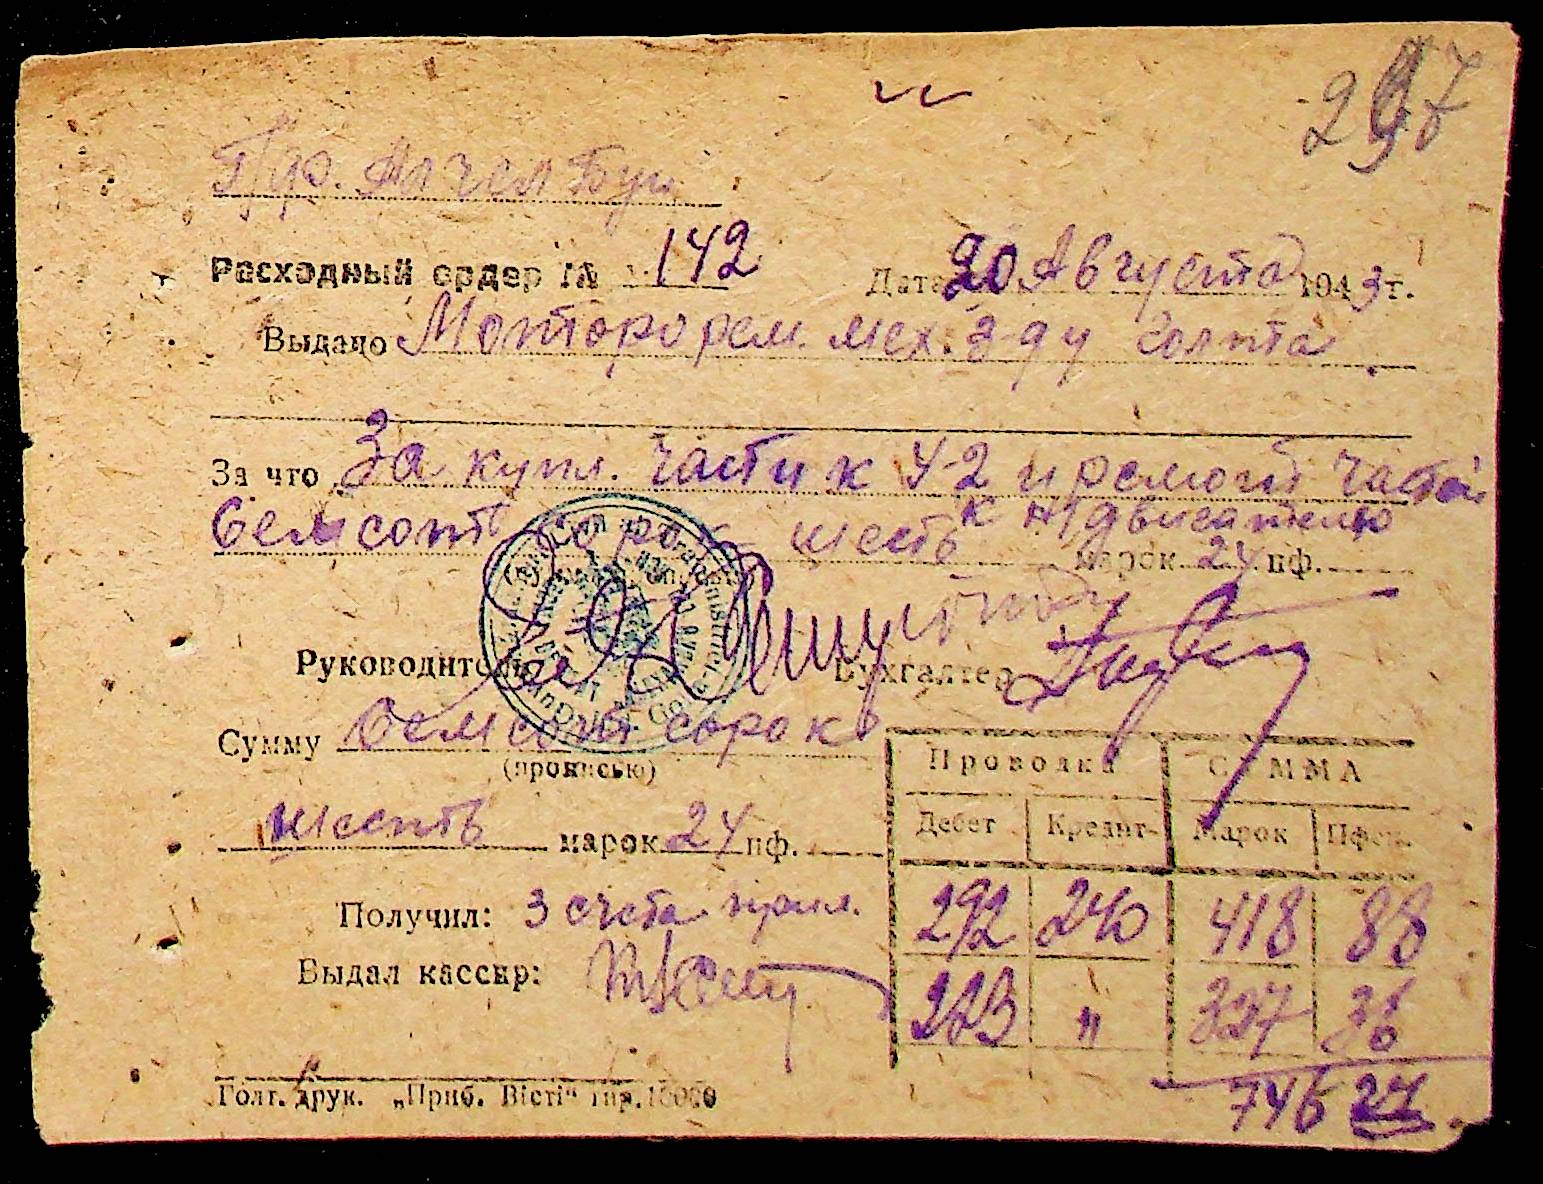 297
Расходный ордер № 142 Дата 20 Августа 1943 г.
Выдано Моторорем. мех. з-ду Голта
За что За купл. части к У-2 и ремонт частей
к двигателю
Семсот сорок шесть марок 24 пф.
Руководитель Бухгалтер
Сумму Семсот сорок
(прописью)
шесть марок 24 пф.
Проводка СУММА
Дебет Кредит Марок Пфен.
Получил: З счета прил. 292 240 418 88
Выдал кассир: 223 " 327 36
746 24
Голт. друк. „Приб. Вісті“ тир. 15000